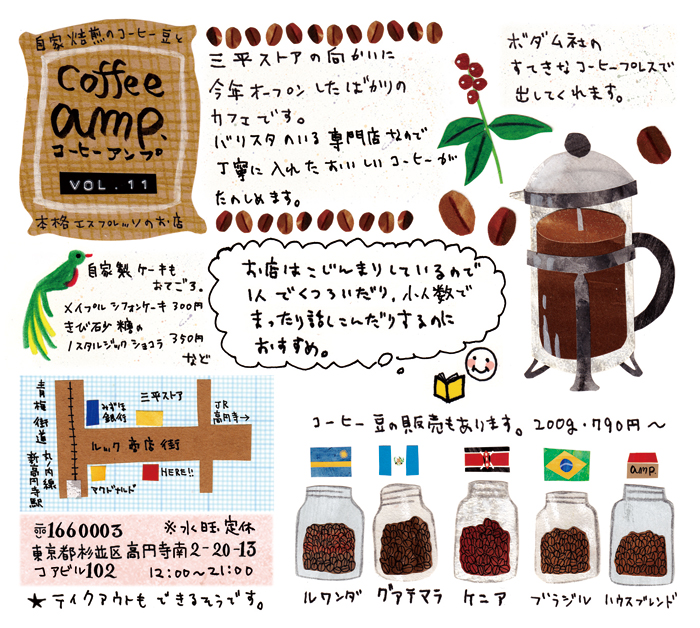 自家焙煎のコーヒー豆と
coffee
amp.
コーヒーアンプ
VOL.11
本格エスプレッソのお店
三平ストアの向かいに
今年オープンしたばかりの
カフェです。
バリスタのいる専門店なので
丁寧に入れたおいしいコーヒーが
たのしめます。
ボダム社の
すてきなコーヒープレスで
出してくれます。
自家製ケーキも
おてごろ。
メイプルシフォンケーキ 300円
きび砂糖の
ノスタルジックショコラ 350円
など
お店はこじんまりしているので
1人でくつろいだり、小人数で
まったり話しこんだりするのに
おすすめ。
青梅街道
丸ノ内線
新高円寺駅
みずほ
銀行
三平ストア
JR
高円寺→
ルック商店街
マクドナルド
HERE!!
〒1660003 ※水曜定休
東京都杉並区高円寺南2-20-13
コアビル102 12:00〜21:00
★テイクアウトもできるそうです。
コーヒー豆の販売もあります。200g・790円〜
amp.
ルワンダ
グアテマラ
ケニア
ブラジル
ハウスブレンド